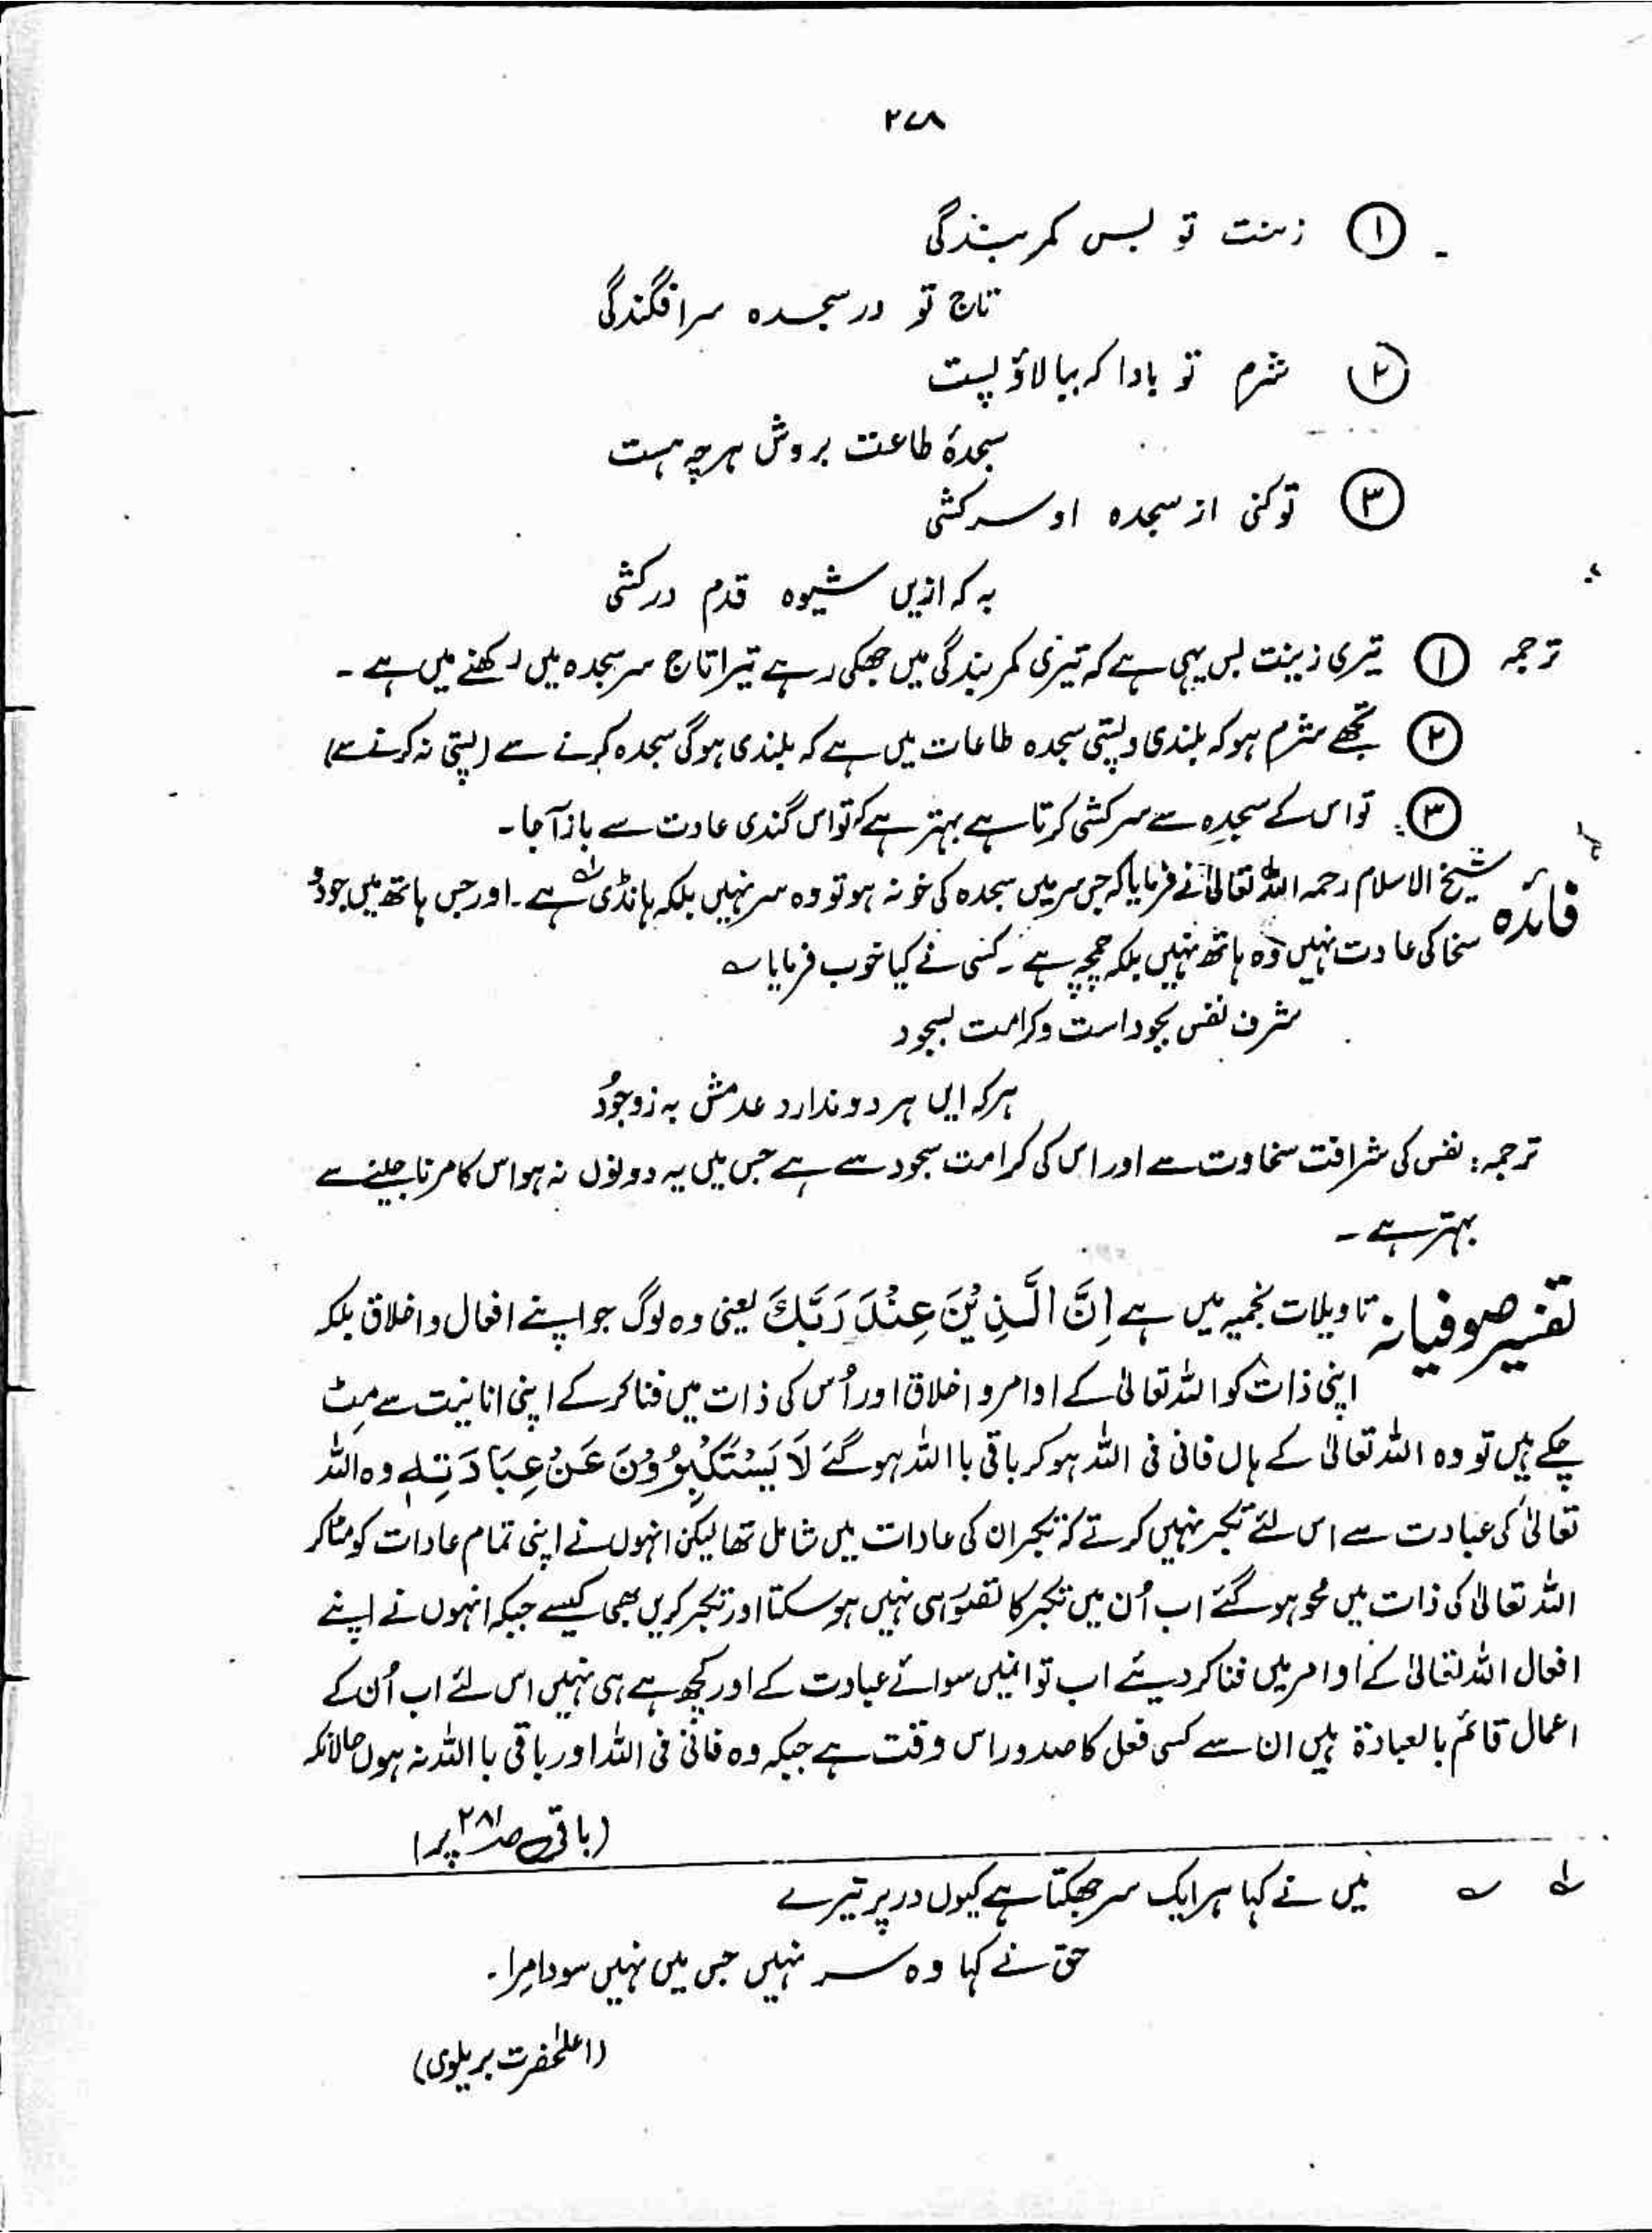 ۲۷۸
① زینت تو بس کمر بندگی
تاج تو در سجدہ سرافگندگی
② شرم تو بادا کہ بیالاؤ پست
سجدۂ طاعت بروش ہرچہ ہست
③ تو کنی از سجدہ او سرکشی
بہ کہ ازیں شیوہ قدم درکشی
ترجمہ ① تیری زینت بس یہی ہے کہ تیری کمر بندگی میں جھکی رہے تیرا تاج سر سجدہ میں رکھنے میں ہے ۔
② تجھے شرم ہو کہ بلندی و پستی سجدہ طاعات میں ہے کہ بلندی ہوگی سجدہ کرنے سے (پستی نہ کرنے سے)
③ تو اس کے سجدہ سے سرکشی کرتا ہے بہتر ہے کہ تو اس گندی عادت سے باز آ جا ۔
فائدہ شیخ الاسلام رحمہ اللہ تعالیٰ نے فرمایا کہ جس سر میں سجدہ کی خو نہ ہو تو وہ سر نہیں بلکہ ہانڈی لہ ہے ۔ اور جس ہاتھ میں جود و
سخا کی عادت نہیں وہ ہاتھ نہیں بلکہ چمچہ ہے ۔ کسی نے کیا خوب فرمایا ؎
شرف نفس بجود است و کرامت بسجود
ہر کہ ایں ہر دو ندارد عدمش بہ ز وجُود
ترجمہ : نفس کی شرافت سخاوت سے اور اس کی کرامت سجود سے ہے جس میں یہ دونوں نہ ہو اس کا مرنا جینے سے
بہتر ہے ۔
تفسیر صوفیانہ تاویلات نجمیہ میں ہے اِنَّ الَّذِیْنَ عِنْدَ رَبِّكَ یعنی وہ لوگ جو اپنے افعال و اخلاق بلکہ
اپنی ذات کو اللہ تعالیٰ کے اوامر و اخلاق اور اُس کی ذات میں فنا کر کے اپنی انانیت سے مِٹ
چکے ہیں تو وہ اللہ تعالیٰ کے ہاں فانی فی اللہ ہو کر باقی با اللہ ہو گئے لَا یَسْتَكْبِرُوْنَ عَنْ عِبَادَتِهٖ وہ اللہ
تعالیٰ کی عبادت سے اس لئے تکبر نہیں کرتے کہ تکبر ان کی عادات میں شامل تھا لیکن انہوں نے اپنی تمام عادات کو مٹا کر
اللہ تعالیٰ کی ذات میں محو ہو گئے اب اُن میں تکبر کا تصوّر ہی نہیں ہو سکتا اور تکبر کریں بھی کیسے جبکہ انہوں نے اپنے
افعال اللہ تعالیٰ کے اوامر میں فنا کر دیئے اب تو انہیں سوائے عبادت کے اور کچھ ہے ہی نہیں اس لئے اب اُن کے
اعمال قائم بالعبادۃ ہیں ان سے کسی فعل کا صدور اس وقت ہے جبکہ وہ فانی فی اللہ اور باقی با اللہ نہ ہوں حالانکہ
(باقی صہ ۲۸۱ پر)
لہ ؎ میں نے کہا ہر ایک سر جھکتا ہے کیوں در پر تیرے
حق نے کہا وہ سر نہیں جس میں نہیں سودا مِرا ۔
(اعلٰحضرت بریلوی)